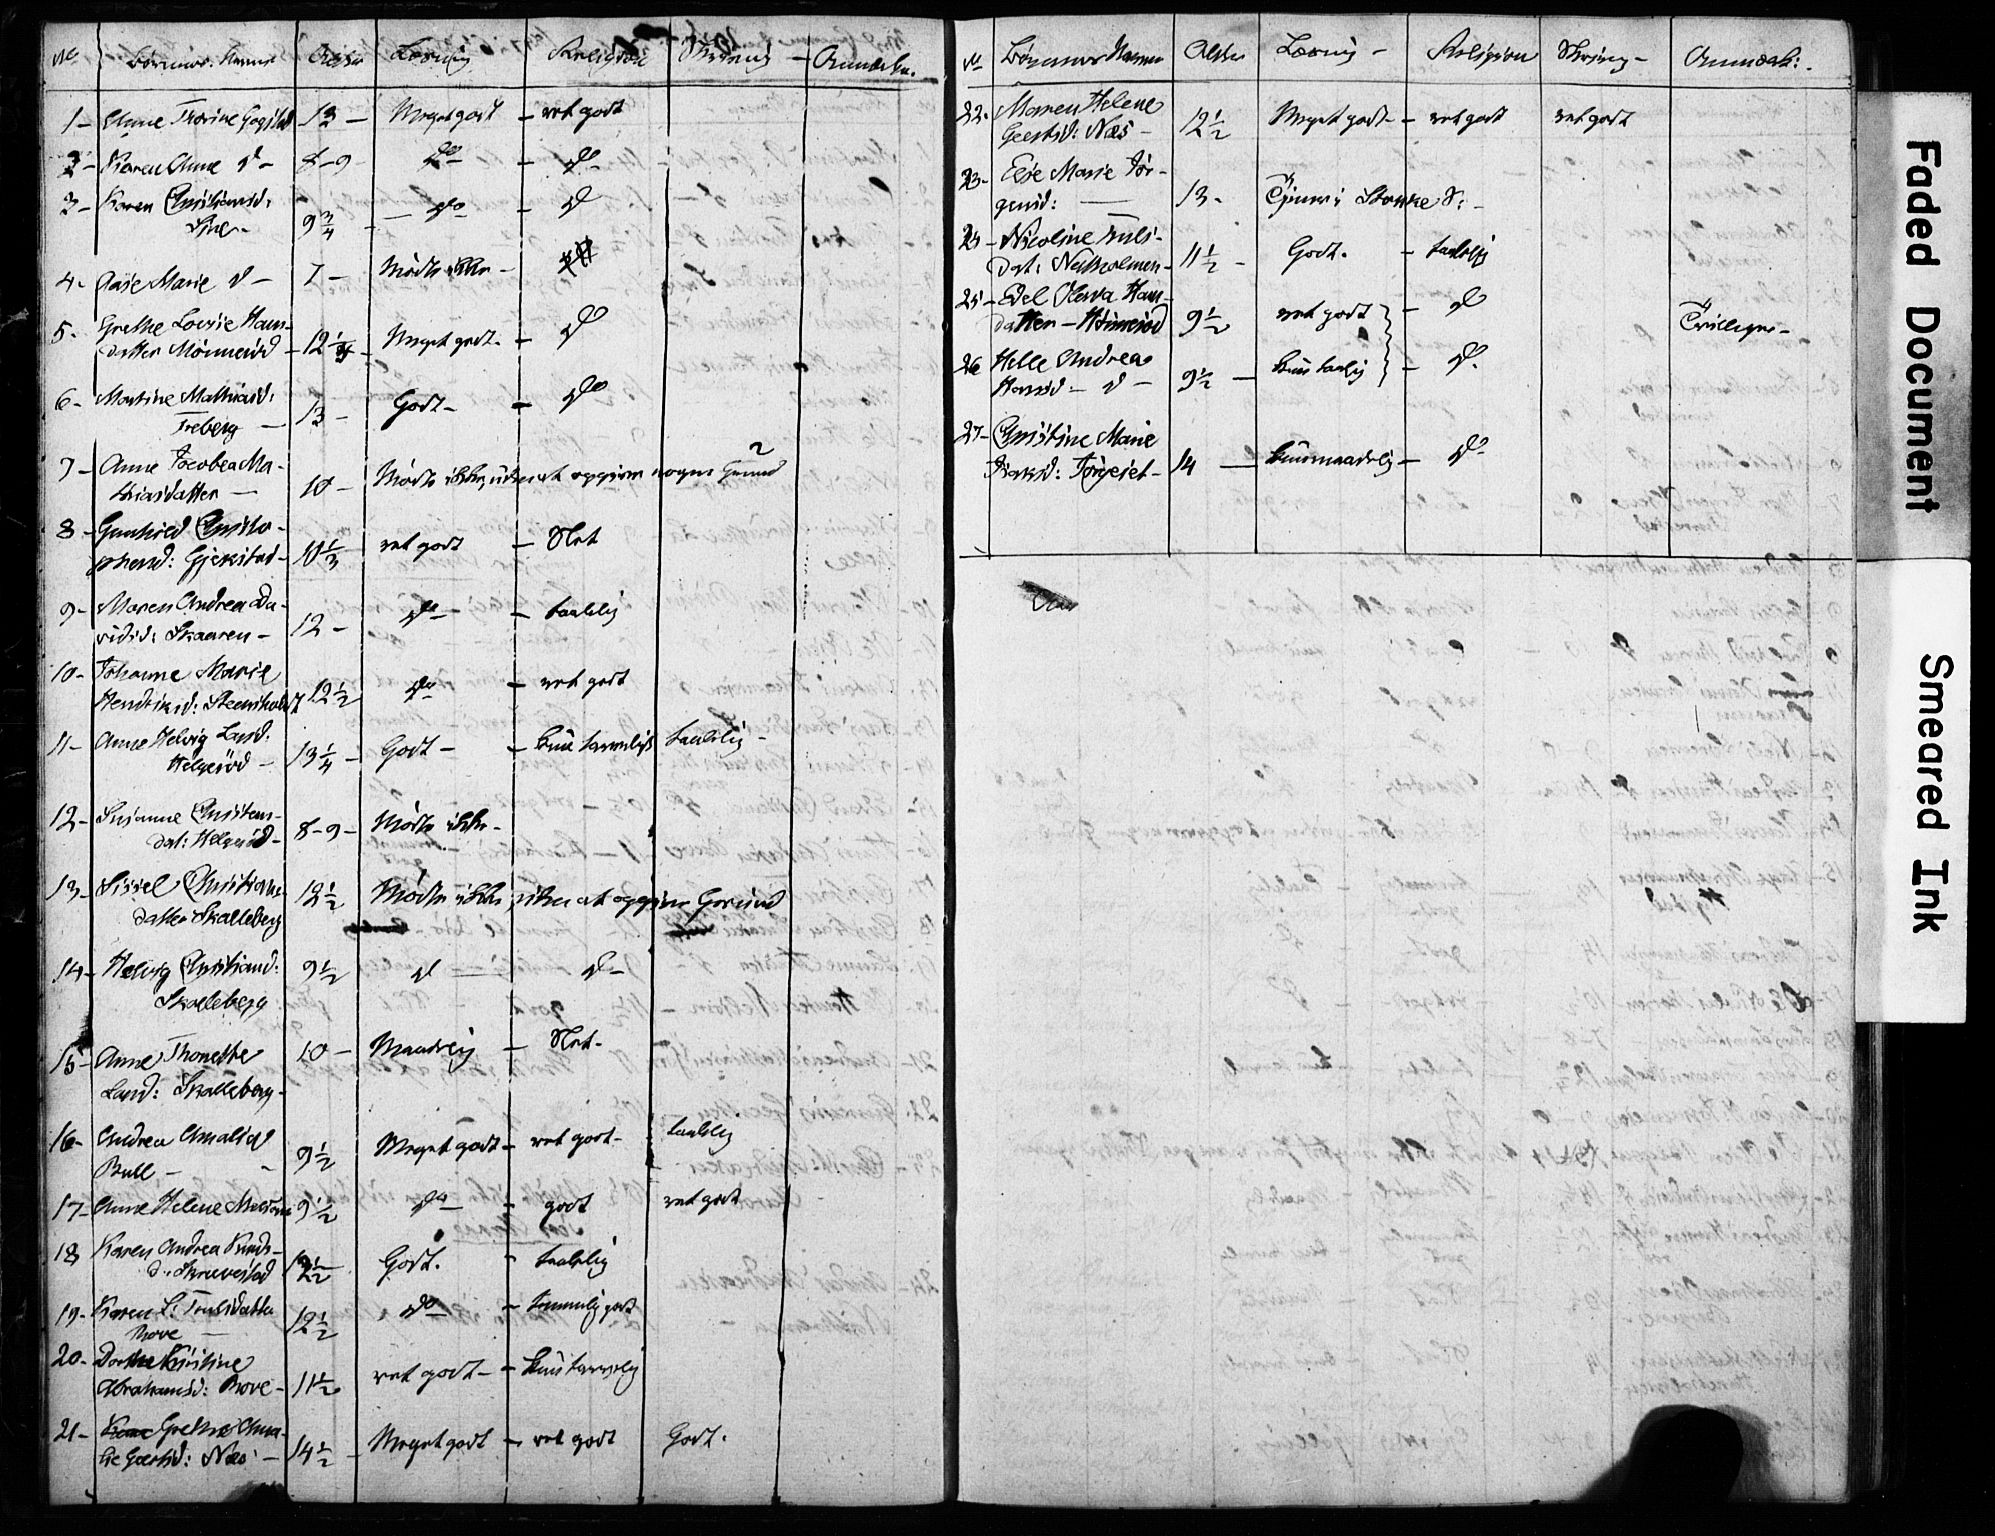 No Børnenes Navne Alder Læsning Religion Skrivning Anmærkn.
1 - Anne Thorine Gogstad 13 - Meget godt - ret godt
2 - Karen Anne d - 8-9 do - do
3 - Karen Christiansd:
9 3/4 - do - do
4 - Marie d - 7 - Mødte ikke -
5 - Grethe Lovise Hans-
datter - 12 1/4 - Meget godt - do
6 - Martine Mathiasd:
Treberg - 13 - Godt - do
7 - Anne Jacobea Ma-
thiasdatter - 10 - Mødte ikke, uden at opgive nogen Grund
8 - Gunhild Christo-
phersd: Gjerstad - 10 1/3 ret godt - Slet
9 - Maren Andrea Da-
vidsd: Skaaren - 12 - do - taalelig
10 - Johanne Marie
Hendriksd: 12 1/2 do - ret godt
11 - Anne Helvig Land:
Helgerød - 13 1/4 - Godt - kun tarvelig taalelig -
12 - Susanne Christens-
dat: Helgerød - 8-9 - Mødte ikke -
13 - Sissel Christians-
datter Skalleberg 12 1/2 Mødte ikke, uden at opgive Grund
14 - Helvig Christiansd:
Skalleberg 9 1/2 d - d -
15 - Anne Thonette
Land: Skalleberg - 10 - Maadelig - Slet -
16 - Andrea Amalia
Bull - 9 1/2 Meget godt - ret godt - taalelig
17 - Anne Helene 9 1/2 do - godt ret godt
18 Karen Andrea Knuds-
d: 12 1/2 Godt. - taalelig
19 - Karen L: Trulsdatter
Hove - 12 1/2 do - temmelig godt
20 - Dorthe Kirstine
Abrahamsd: Hove - 11 1/2 ret godt - kun tarvelig
21 - Grethe Ama-
lie Geertsd: Næs - 14 1/2 - Meget godt - ret godt Godt.
No Børnenes Navne Alder Læsning - Religion Skrivning - Anmærk:
22 - Maren Helene
Geertsd: Næs - 12 1/2 Meget godt - ret godt ret godt
23 - Else Marie Jör-
gensd: - 13 - Tjener i Stokke S: -
24 - Nicoline Truls-
dat: Natholmen - 11 1/2 - Godt. - taalelig
25 - Edel Olava Hans-
datter - 9 1/2 ret godt - do Tvillinger -
26 Helle Andrea
Hansd - d - 9 1/2 - kun taalelig - do
27 - Christine Marie
Isaksd: 14 - kun maadelig - do
Faded Document
Smeared Ink